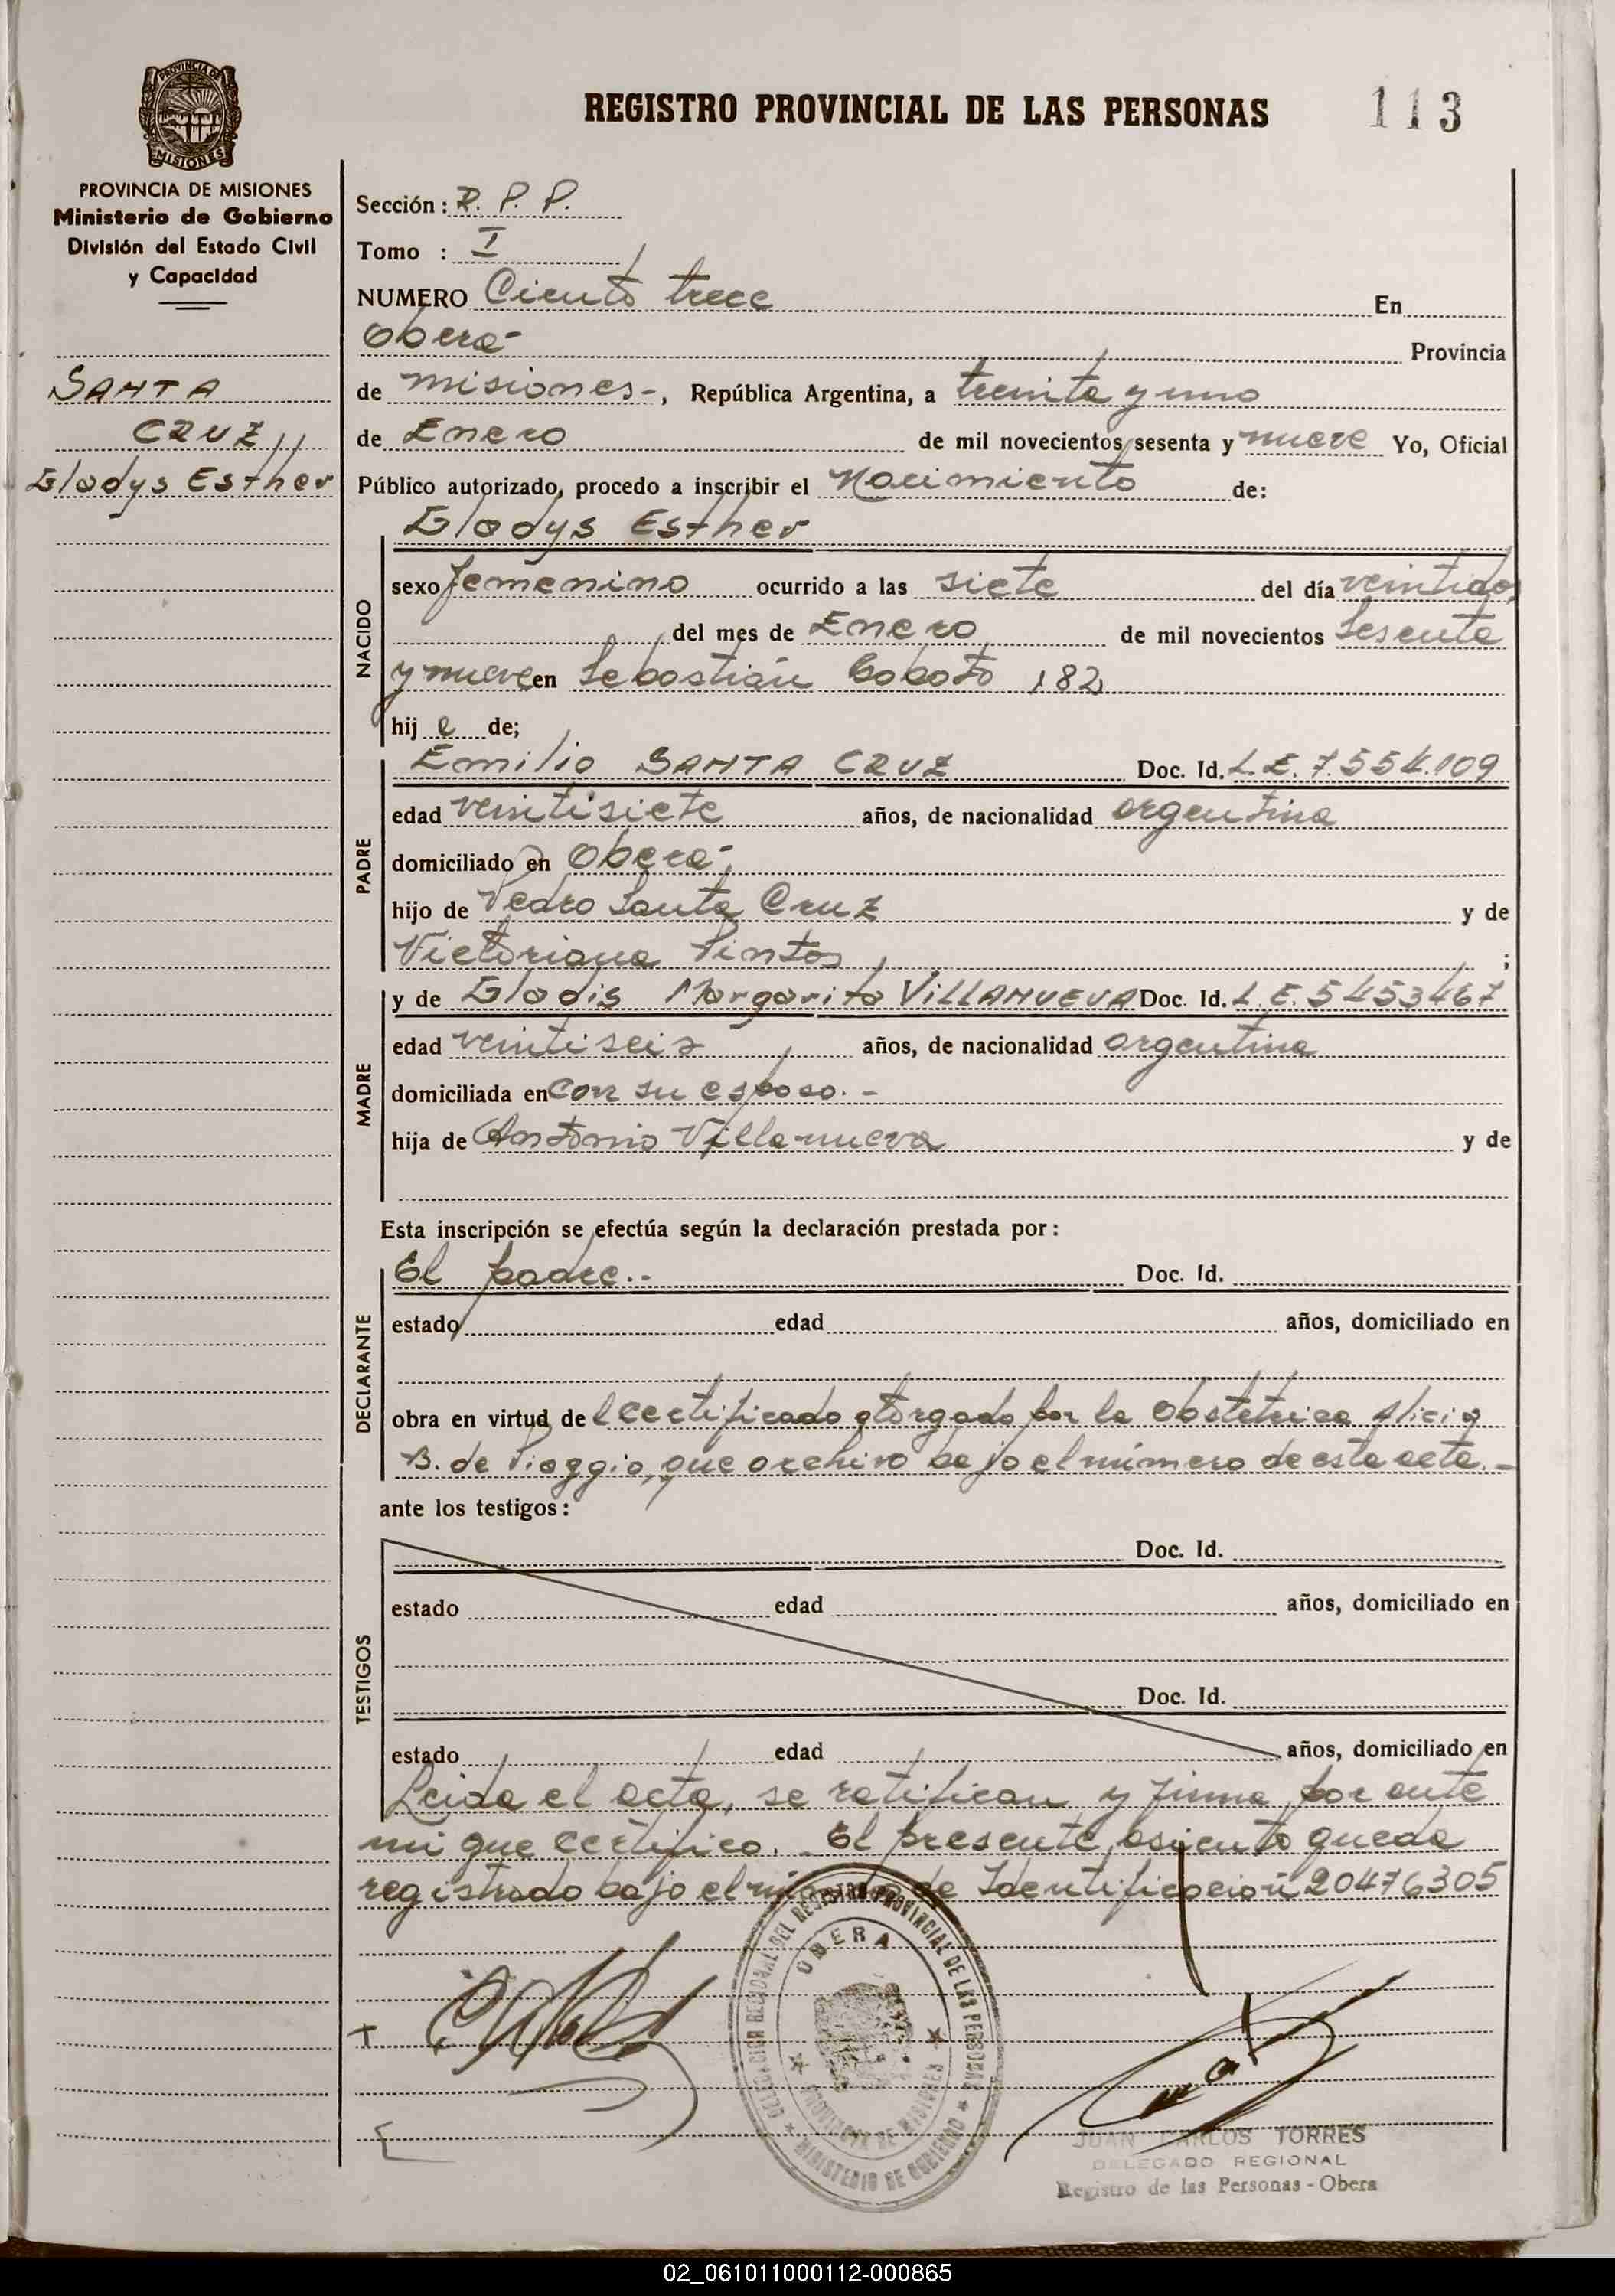 REGISTRO PROVINCIAL DE LAS PERSONAS 113
PROVINCIA DE
MISIONES
PROVINCIA DE MISIONES
Ministerio de Gobierno
División del Estado Civil
y Capacidad
SANTA
CRUZ,,
Gladys Esther
Sección: R. P. P.
Tomo : I
NUMERO Ciento trece En
Oberá- Provincia
de Misiones-, República Argentina, a treinta y uno
de Enero de mil novecientos sesenta y nueve Yo, Oficial
Público autorizado, procedo a inscribir el Nacimiento de:
Gladys Esther
NACIDO
sexo femenino ocurrido a las siete del día veintidos
del mes de Enero de mil novecientos sesenta
y nueve en Sebastián Gaboto 182
hij a de;
PADRE
Emilio SANTA CRUZ Doc. Id. L.E. 7.554.109
edad veintisiete años, de nacionalidad argentina
domiciliado en Oberá-,
hijo de Pedro Santa Cruz y de
Victoriana Pintos ;
MADRE
y de Gladis Margarita VILLANUEVA Doc. Id. L.E. 5453467
edad veintiseis años, de nacionalidad argentina
domiciliada en con su esposo.-
hija de Antonio Villanueva y de
Esta inscripción se efectúa según la declaración prestada por:
DECLARANTE
El padre.- Doc. Id.
estado edad años, domiciliado en
obra en virtud de l certificado otorgado por la Obstetrica Alicia
B. de Pioggio, que archivo bajo el número de esta acta.-
ante los testigos:
TESTIGOS
Doc. Id.
estado edad años, domiciliado en
Doc. Id.
estado edad años, domiciliado en
Leida el acta, se ratifican y firma por ante
mi que certifico. El presente asiento queda
registrado bajo el número de Identificación 20476305
DELEGACION REGIONAL DEL REGISTRO PROVINCIAL DE LAS PERSONAS
OBERA
PROVINCIA DE MISIONES
MINISTERIO DE GOBIERNO
JUAN CARLOS TORRES
DELEGADO REGIONAL
Registro de las Personas - Obera
02_061011000112-000865